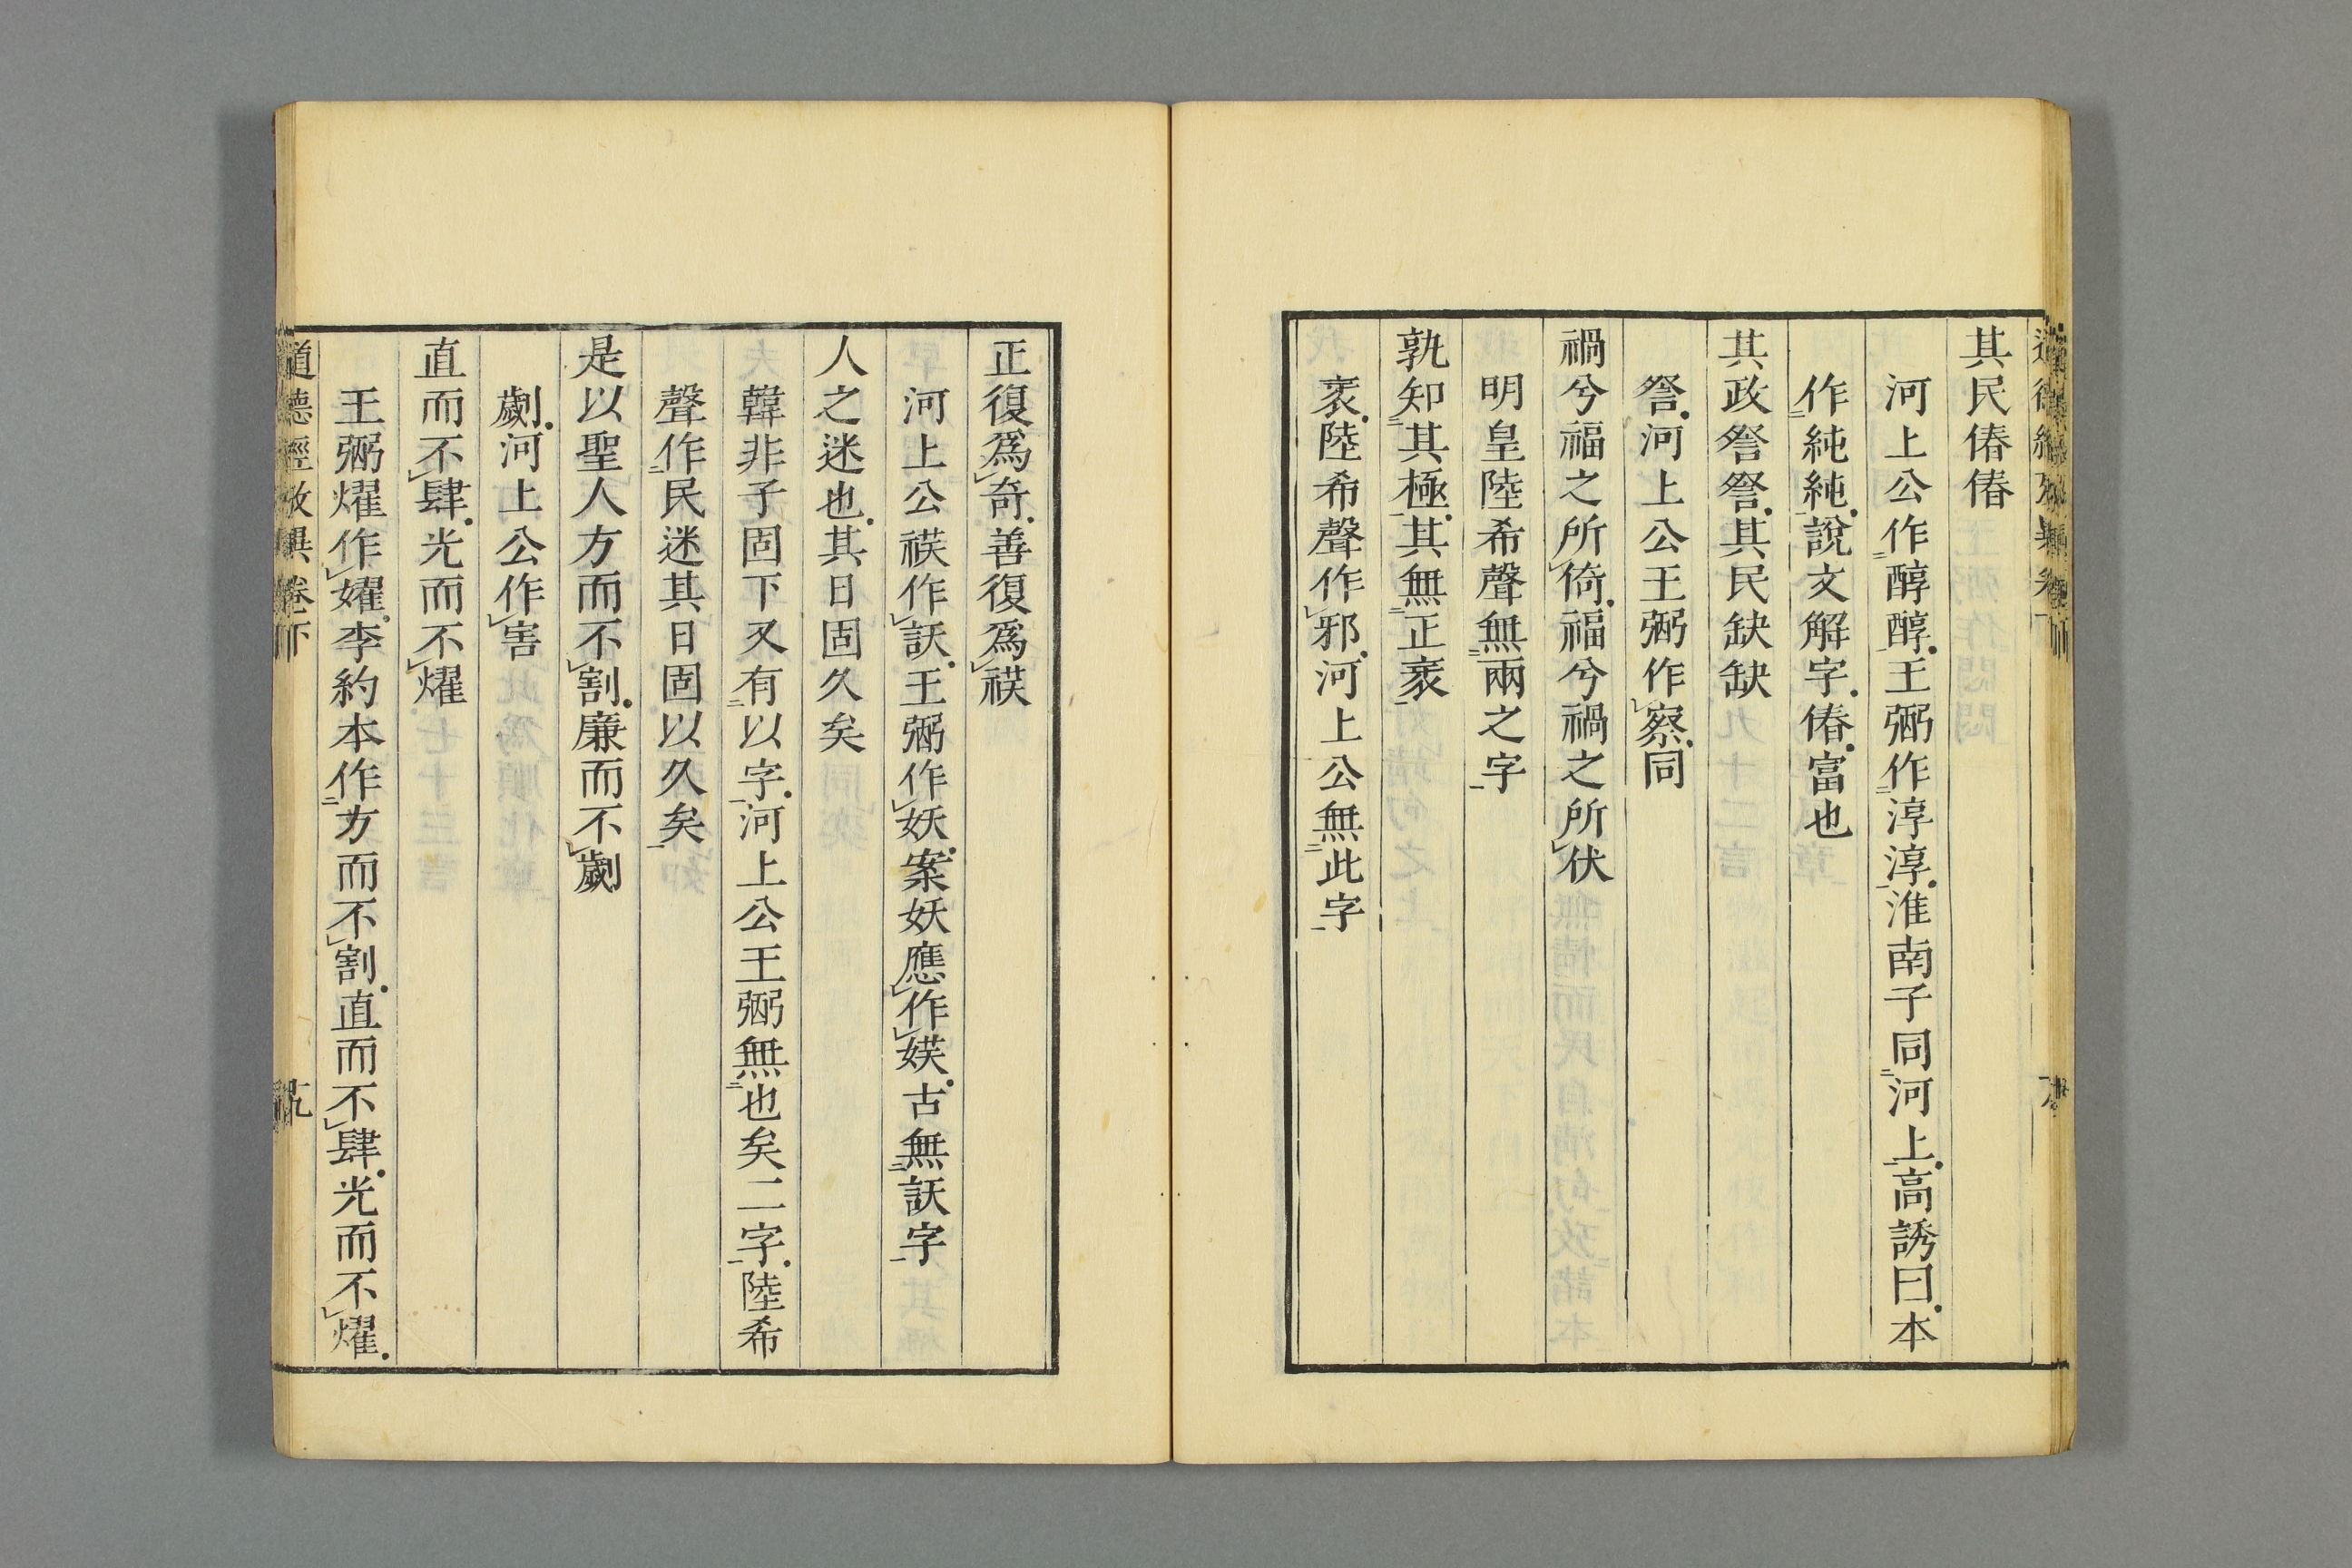 其民偆偆
河上公作醇醇王弼作淳淳淮南子同河上高誘曰本
作純純說文解字偆富也
其政詧詧其民缺缺
詧河上公王弼作察同
禍兮福之所倚福兮禍之所伏
明皇陸希聲無兩之字
孰知其極其無正衺
衺陸希聲作邪河上公無此字
正復爲奇善復爲䄏
河上公䄏作訞王弼作妖案妖應作媄古無訞字
人之迷也其日固久矣
韓非子固下又有以字河上公王弼無也矣二字陸希
聲作民迷其日固以久矣
是以聖人方而不割廉而不劌
劌河上公作害
直而不肆光而不燿
王弼燿作嬥李約本作方而不割直而不肆光而不燿
道德經攷異卷下